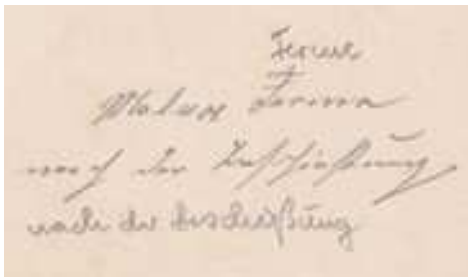 Ferme
Ferma
nach der Beschießung
nach der Beschießung